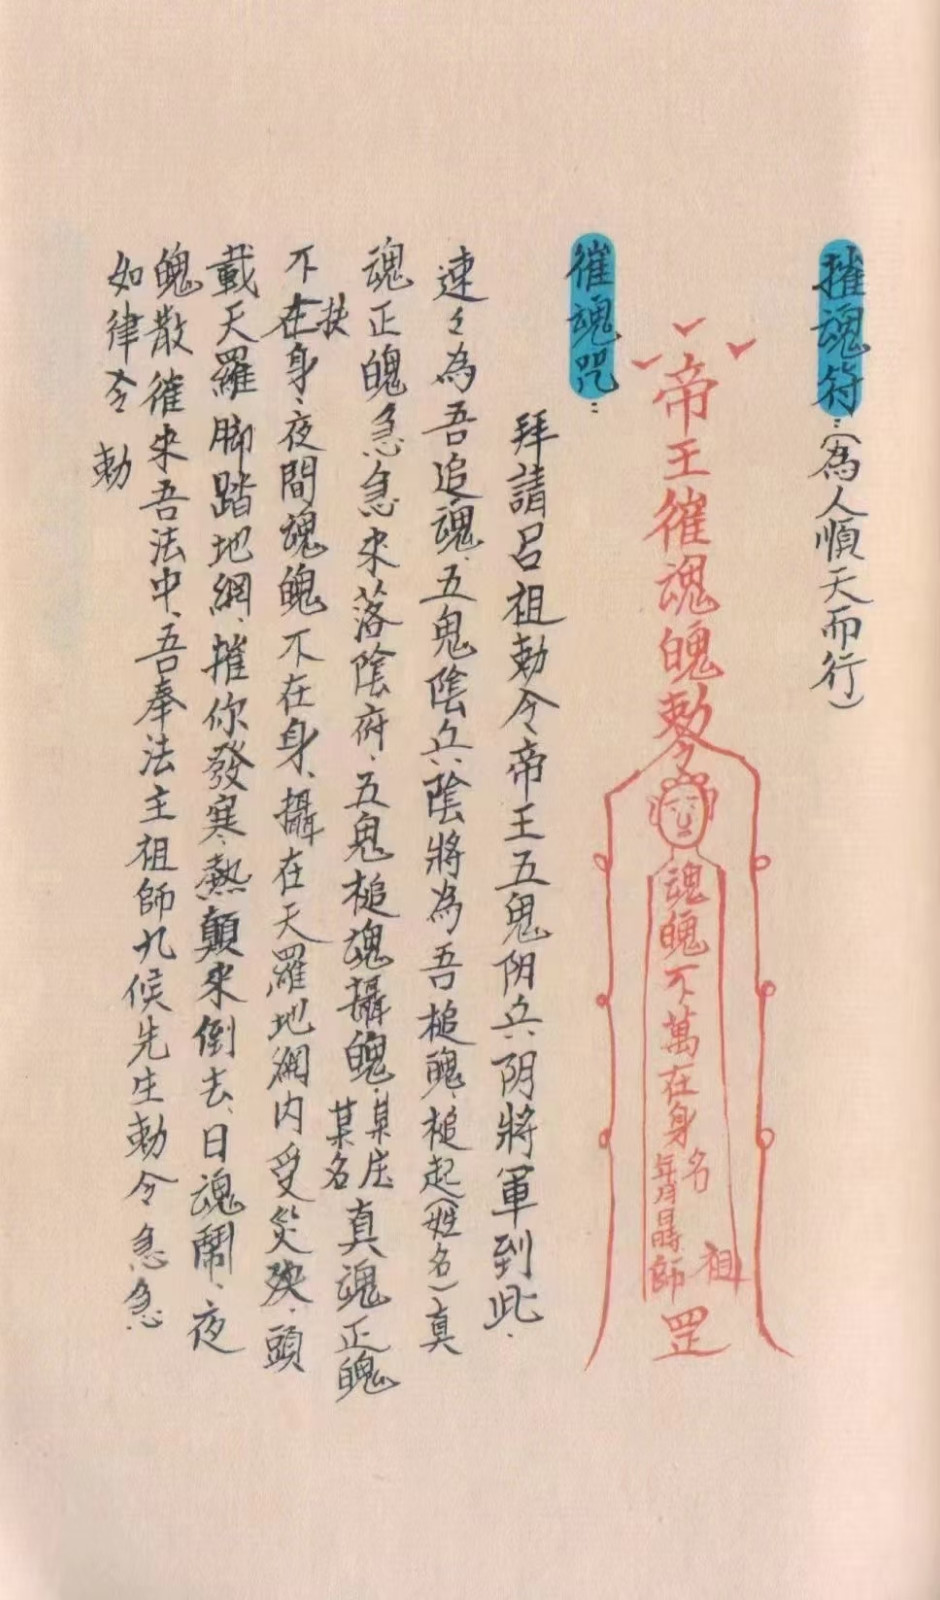 摧魂符：（為人順天而行）
帝王催魂魄敕令
魂魄不萬在身
名
年月日時
祖師
罡
催魂咒：
拜請吕祖勅令帝王五鬼阴兵阴將軍到此、
速々為吾追魂、五鬼陰兵陰將為吾槌魄、槌起（姓名）真
魂正魄急急来落陰府、五鬼槌魂攝魄、某庄某名真魂正魄
不在扶身、夜間魂魄不在身、攝在天羅地網内受災殃、頭
載天羅脚踏地網、摧你發寒熱顛来倒去、日魂鬧、夜
魄散催来吾法中、吾奉法主祖師九候先生勅令急急
如律令 勅